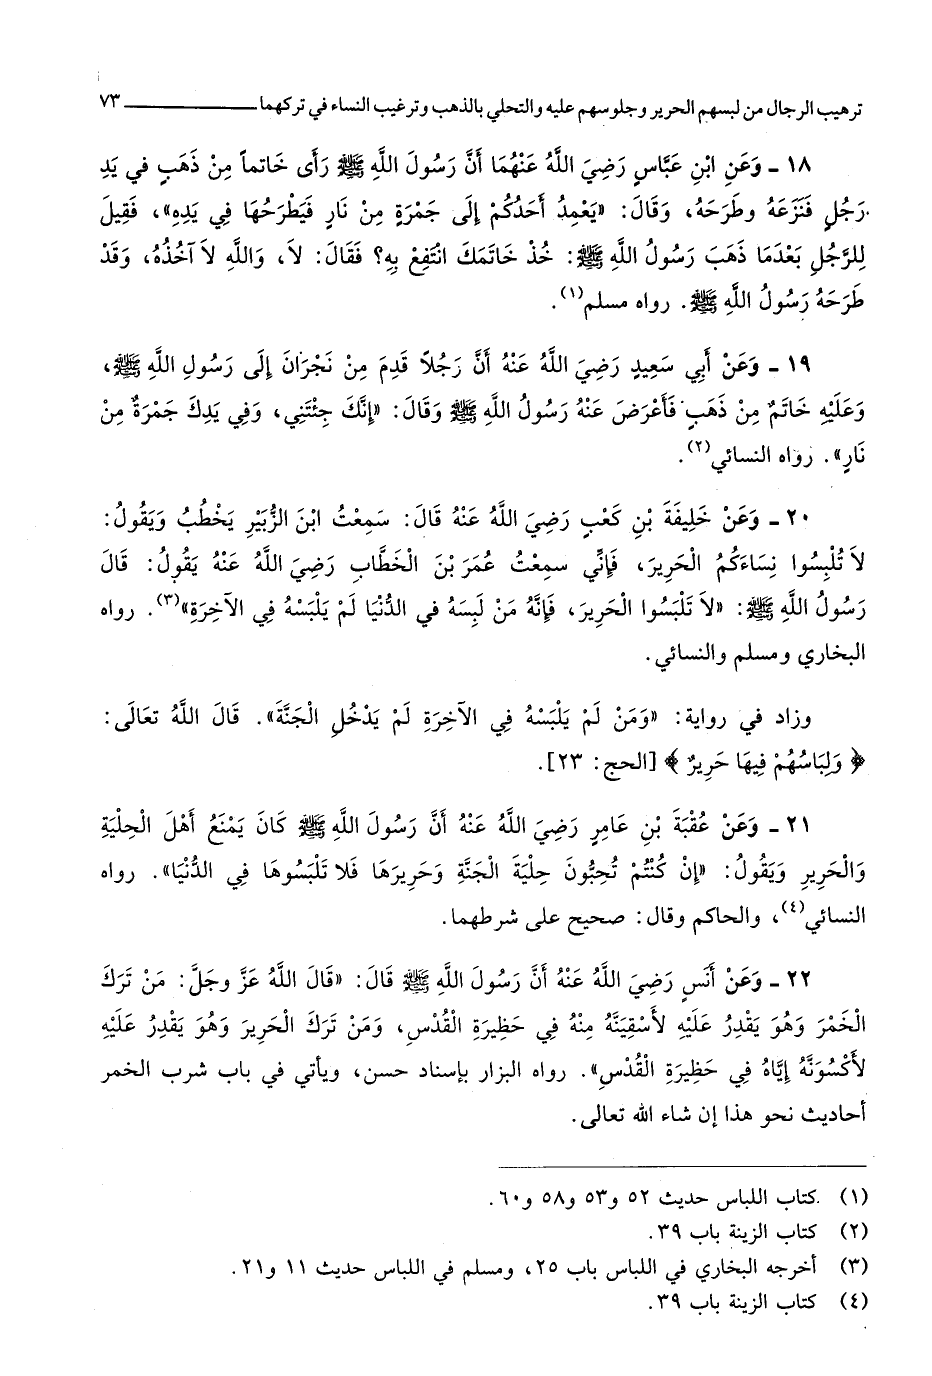 ترهيب الرجال من لبسهم الحرير وجلوسهم عليه والتحلي بالذهب وترغيب النساء في تركهما ــــــــــــــ ٧٣
١٨ ـ وَعَنِ ابْنِ عَبَّاسٍ رَضِيَ اللَّهُ عَنْهُمَا أَنَّ رَسُولَ اللَّهِ ﷺ رَأَى خَاتماً مِنْ ذَهَبٍ في يَدِ
رَجُلٍ فَنَزَعَهُ وطَرَحَهُ، وَقَالَ: «يَعْمِدُ أَحَدُكُمْ إِلَى جَمْرَةٍ مِنْ نَارٍ فَيَطْرَحُهَا فِي يَدِهِ»، فَقِيلَ
لِلرَّجُلِ بَعْدَمَا ذَهَبَ رَسُولُ اللَّهِ ﷺ: خُذْ خَاتَمَكَ انْتَفِعْ بِهِ؟ فَقَالَ: لاَ، وَاللَّهِ لاَ آخُذُهُ، وَقَدْ
طَرَحَهُ رَسُولُ اللَّهِ ﷺ. رواه مسلم(١).
١٩ ـ وَعَنْ أَبِي سَعِيدٍ رَضِيَ اللَّهُ عَنْهُ أَنَّ رَجُلاً قَدِمَ مِنْ نَجْرَانَ إِلَى رَسُولِ اللَّهِ ﷺ،
وَعَلَيْهِ خَاتَمٌ مِنْ ذَهَبٍ فَأَعْرَضَ عَنْهُ رَسُولُ اللَّهِ ﷺ وَقَالَ: «إِنَّكَ جِئْتَنِي، وَفِي يَدِكَ جَمْرَةٌ مِنْ
نَارٍ». رواه النسائي(٢).
٢٠ ـ وَعَنْ خَلِيفَةَ بْنِ كَعْبٍ رَضِيَ اللَّهُ عَنْهُ قَالَ: سَمِعْتُ ابْنَ الزُّبَيْرِ يَخْطُبُ وَيَقُولُ:
لاَ تُلْبِسُوا نِسَاءَكُمُ الْحَرِيرَ، فَإِنِّي سمِعْتُ عُمَرَ بْنَ الْخَطَّابِ رَضِيَ اللَّهُ عَنْهُ يَقُولُ: قَالَ
رَسُولُ اللَّهِ ﷺ: «لاَ تَلْبَسُوا الْحَرِيرَ، فَإِنَّهُ مَنْ لَبِسَهُ في الدُّنْيَا لَمْ يَلْبَسْهُ فِي الآخِرَةِ»(٣). رواه
البخاري ومسلم والنسائي.
وزاد في رواية: «وَمَنْ لَمْ يَلْبَسْهُ فِي الآخِرَةِ لَمْ يَدْخُلِ الْجَنَّةَ». قَالَ اللَّهُ تعَالَى:
﴿ وَلِبَاسُهُمْ فِيهَا حَرِيرٌ ﴾ [الحج: ٢٣].
٢١ ـ وَعَنْ عُقْبَةَ بْنِ عَامِرٍ رَضِيَ اللَّهُ عَنْهُ أَنَّ رَسُولَ اللَّهِ ﷺ كَانَ يَمْنَعُ أَهْلَ الْحِلْيَةِ
وَالْحَرِيرِ وَيَقُولُ: «إِنْ كُنْتُمْ تُحِبُّونَ حِلْيَةَ الْجَنَّةِ وَحَرِيرَهَا فَلا تَلْبَسُوهَا فِي الدُّنْيَا». رواه
النسائي(٤)، والحاكم وقال: صحيح على شرطهما.
٢٢ ـ وَعَنْ أَنَسٍ رَضِيَ اللَّهُ عَنْهُ أَنَّ رَسُولَ اللَّهِ ﷺ قَالَ: «قَالَ اللَّهُ عَزَّ وجَلَّ: مَنْ تَرَكَ
الْخَمْرَ وَهُوَ يَقْدِرُ عَلَيْهِ لأَسْقِيَنَّهُ مِنْهُ فِي حَظِيرَةِ الْقُدْسِ، وَمَنْ تَرَكَ الْحَرِيرَ وَهُوَ يَقْدِرُ عَلَيْهِ
لأَكْسُوَنَّهُ إِيَّاهُ فِي حَظِيرَةِ الْقُدْسِ». رواه البزار بإسناد حسن، ويأتي في باب شرب الخمر
أحاديث نحو هذا إن شاء الله تعالى.
(١) كتاب اللباس حديث ٥٢ و٥٣ و٥٨ و٦٠.
(٢) كتاب الزينة باب ٣٩.
(٣) أخرجه البخاري في اللباس باب ٢٥، ومسلم في اللباس حديث ١١ و٢١.
(٤) كتاب الزينة باب ٣٩.